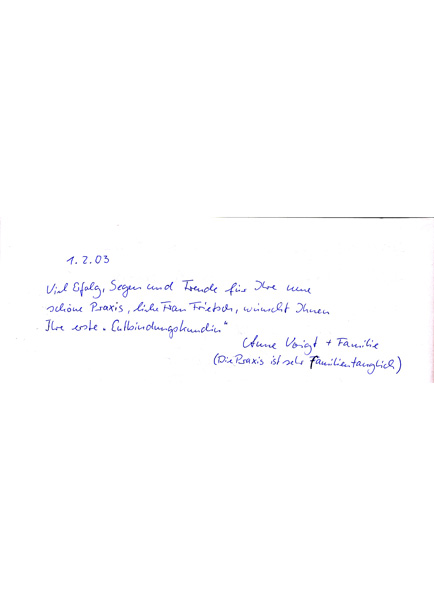 1.2.03
Viel Erfolg, Segen und Freude für Ihre neue
schöne Praxis, liebe Frau Frietsch, wünscht Ihnen
Ihre erste „Entbindungskundin"
Anne Voigt + Familie
(Die Praxis ist sehr Familientauglich)